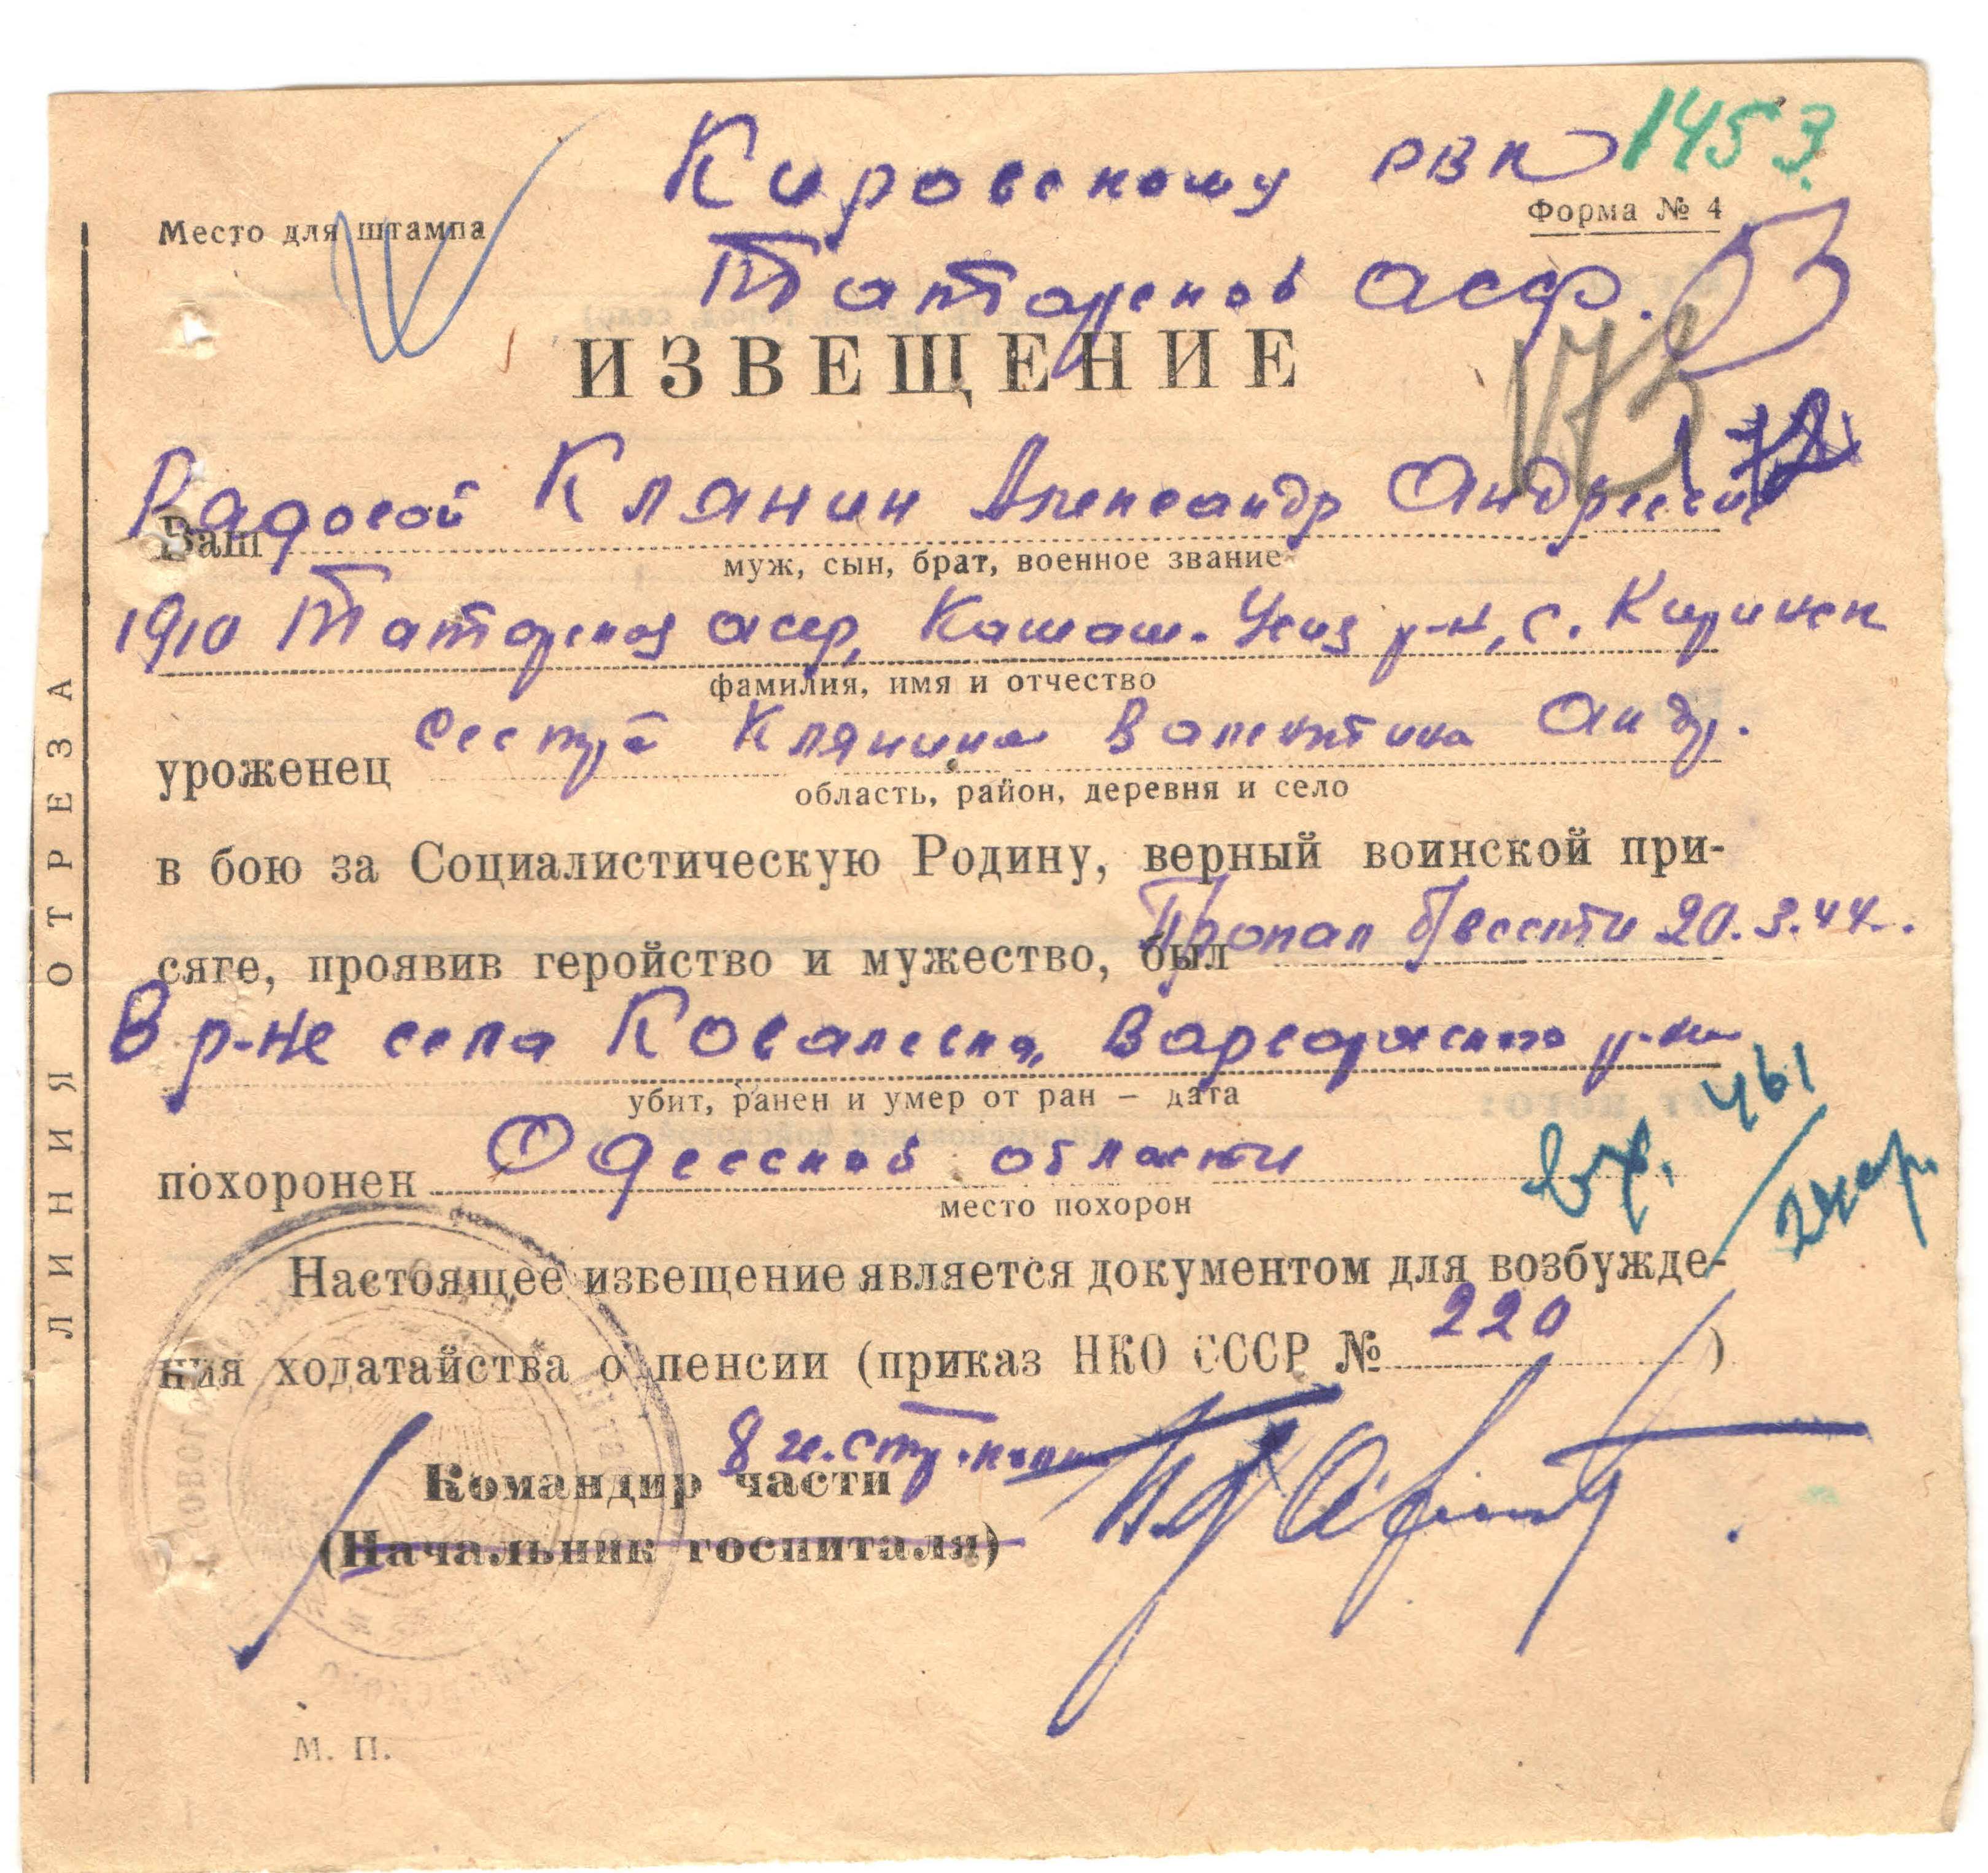 Кировскому РВК 1453.
Место для штампа
Форма № 4
Татарской асср.
173
ИЗВЕЩЕНИЕ
Рядовой Клянин Александр Андреевич
Ваш
муж, сын, брат, военное звание
1910 Татарская асср, р-н, с.
фамилия, имя и отчество
Сестра Клянина Валентина Андр.
уроженец
область, район, деревня и село
в бою за Социалистическую Родину, верный воинской при-
Пропал б/вести 20.3.44.
сяге, проявив геройство и мужество, был
В р-не села Ковалевка, Варваровского р-на
убит, ранен и умер от ран – дата
похоронен Одесской области
вх. 461
место похорон
Настоящее извещение является документом для возбужде-
ния ходатайства о пенсии (приказ НКО СССР № 220 )
Командир части
(Начальник госпиталя)
М. П.
ЛИНИЯ ОТРЕЗА